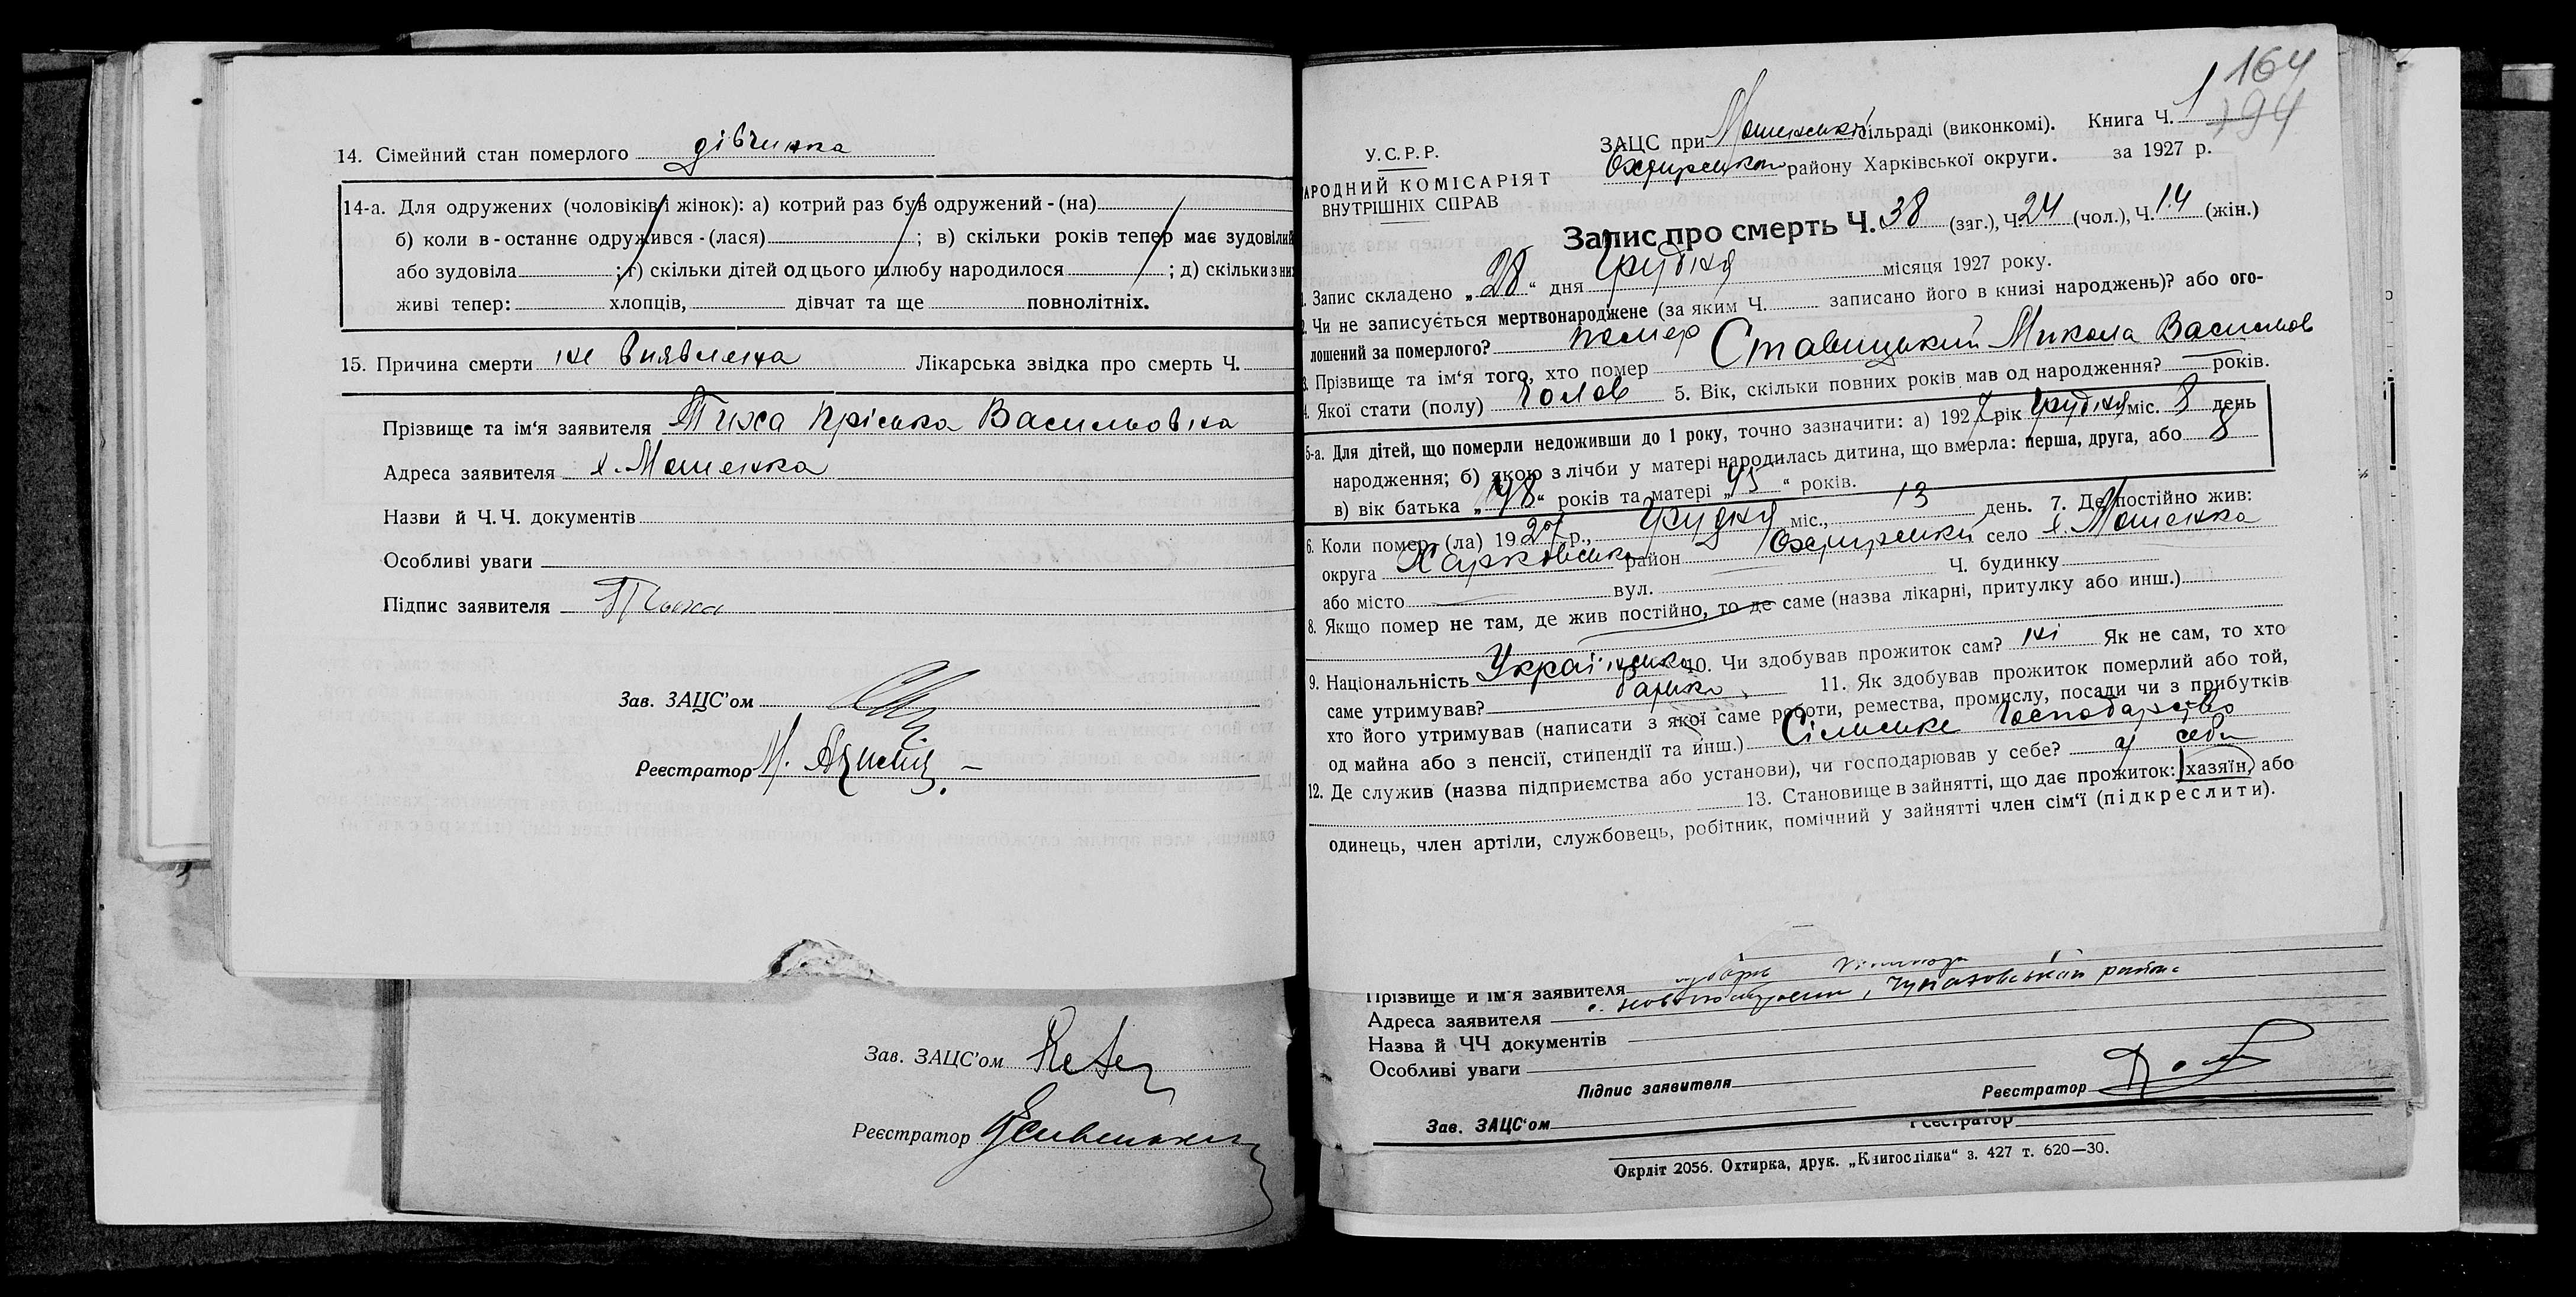 14. Сімейний стан померлого дівчинка
14-а. Для одружених (чоловіків і жінок): а) котрий раз був одружений - (на)
б) коли в - останнє одружився - (лася) ; в) скільки років тепер має зудовілий
або зудовіла ; г) скільки дітей од цього шлюбу народилося ; д) скільки з них
живі тепер: хлопців, дівчат та ще повнолітніх.
15. Причина смерти не виявлена Лікарська звідка про смерть Ч.
Прізвище та ім'я заявителя Тиха Пріська Васильовна
Адреса заявителя х. Мошенка
Назви й Ч.Ч. документів
Особливі уваги
Підпис заявителя Тиха
Зав. ЗАЦС'ом
Реєстратор М.
Зав. ЗАЦС'ом
Реєстратор
164
194
У.С.Р.Р.
АРОДНИЙ КОМІСАРІЯТ
ВНУТРІШНІХ СПРАВ
ЗАЦС при Мошенській сільраді (виконкомі). Книга Ч. 1
Охтирського району Харківської округи. за 1927 р.
Запис про смерть Ч. 38 (заг.), Ч. 24 (чол.), Ч. 14 (жін.)
1. Запис складено „28“ дня Грудня місяця 1927 року.
2. Чи не записується мертвонароджене (за яким Ч. записано його в книзі народжень)? або ого-
лошений за померлого? помер
3. Прізвище та ім'я того, хто помер Ставицький Микола Васильов
4. Якої стати (полу) Чолов 5. Вік, скільки повних років мав од народження? років.
5-а. Для дітей, що померли недоживши до 1 року, точно зазначити: а) 1927 рік Грудня міс. 8 день
народження; б) якою з лічби у матері народилась дитина, що вмерла: перша, друга, або 8
в) вік батька „48“ років та матері „45“ років.
6. Коли помер, (ла) 1927 р., Грудня міс., 13 день. 7. Де постійно жив:
округа Харковська район Охтирський село х. Мошенка
або місто вул. Ч. будинку
8. Якщо помер не там, де жив постійно, то де саме (назва лікарні, притулку або инш.)
9. Національність Українська 10. Чи здобував прожиток сам? ні Як не сам, то хто
саме утримував? батько 11. Як здобував прожиток померлий або той,
хто його утримував (написати з якої саме роботи, ремества, промислу, посади чи з прибутків
од майна або з пенсії, стипендії та инш.) Сільське Господарство
12. Де служив (назва підприємства або установи), чи господарював у себе? у себе
13. Становище в зайнятті, що дає прожиток: хазяїн, або
одинець, член артіли, службовець, робітник, помічний у зайнятті член сім'ї (підкреслити).
Прізвище й ім'я заявителя
Адреса заявителя района
Назва й ЧЧ документів
Особливі уваги
Підпис заявителя Реєстратор
Зав. ЗАЦС'ом
Реєстратор
Окрліт 2056. Охтирка, друк. „Книгоспілки“ з. 427 т. 620—30.